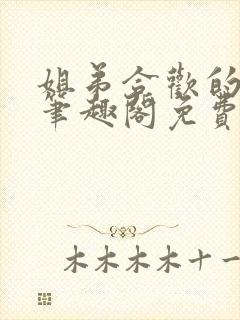 姐弟合歡的
筆趣閣免費
木木木木十一